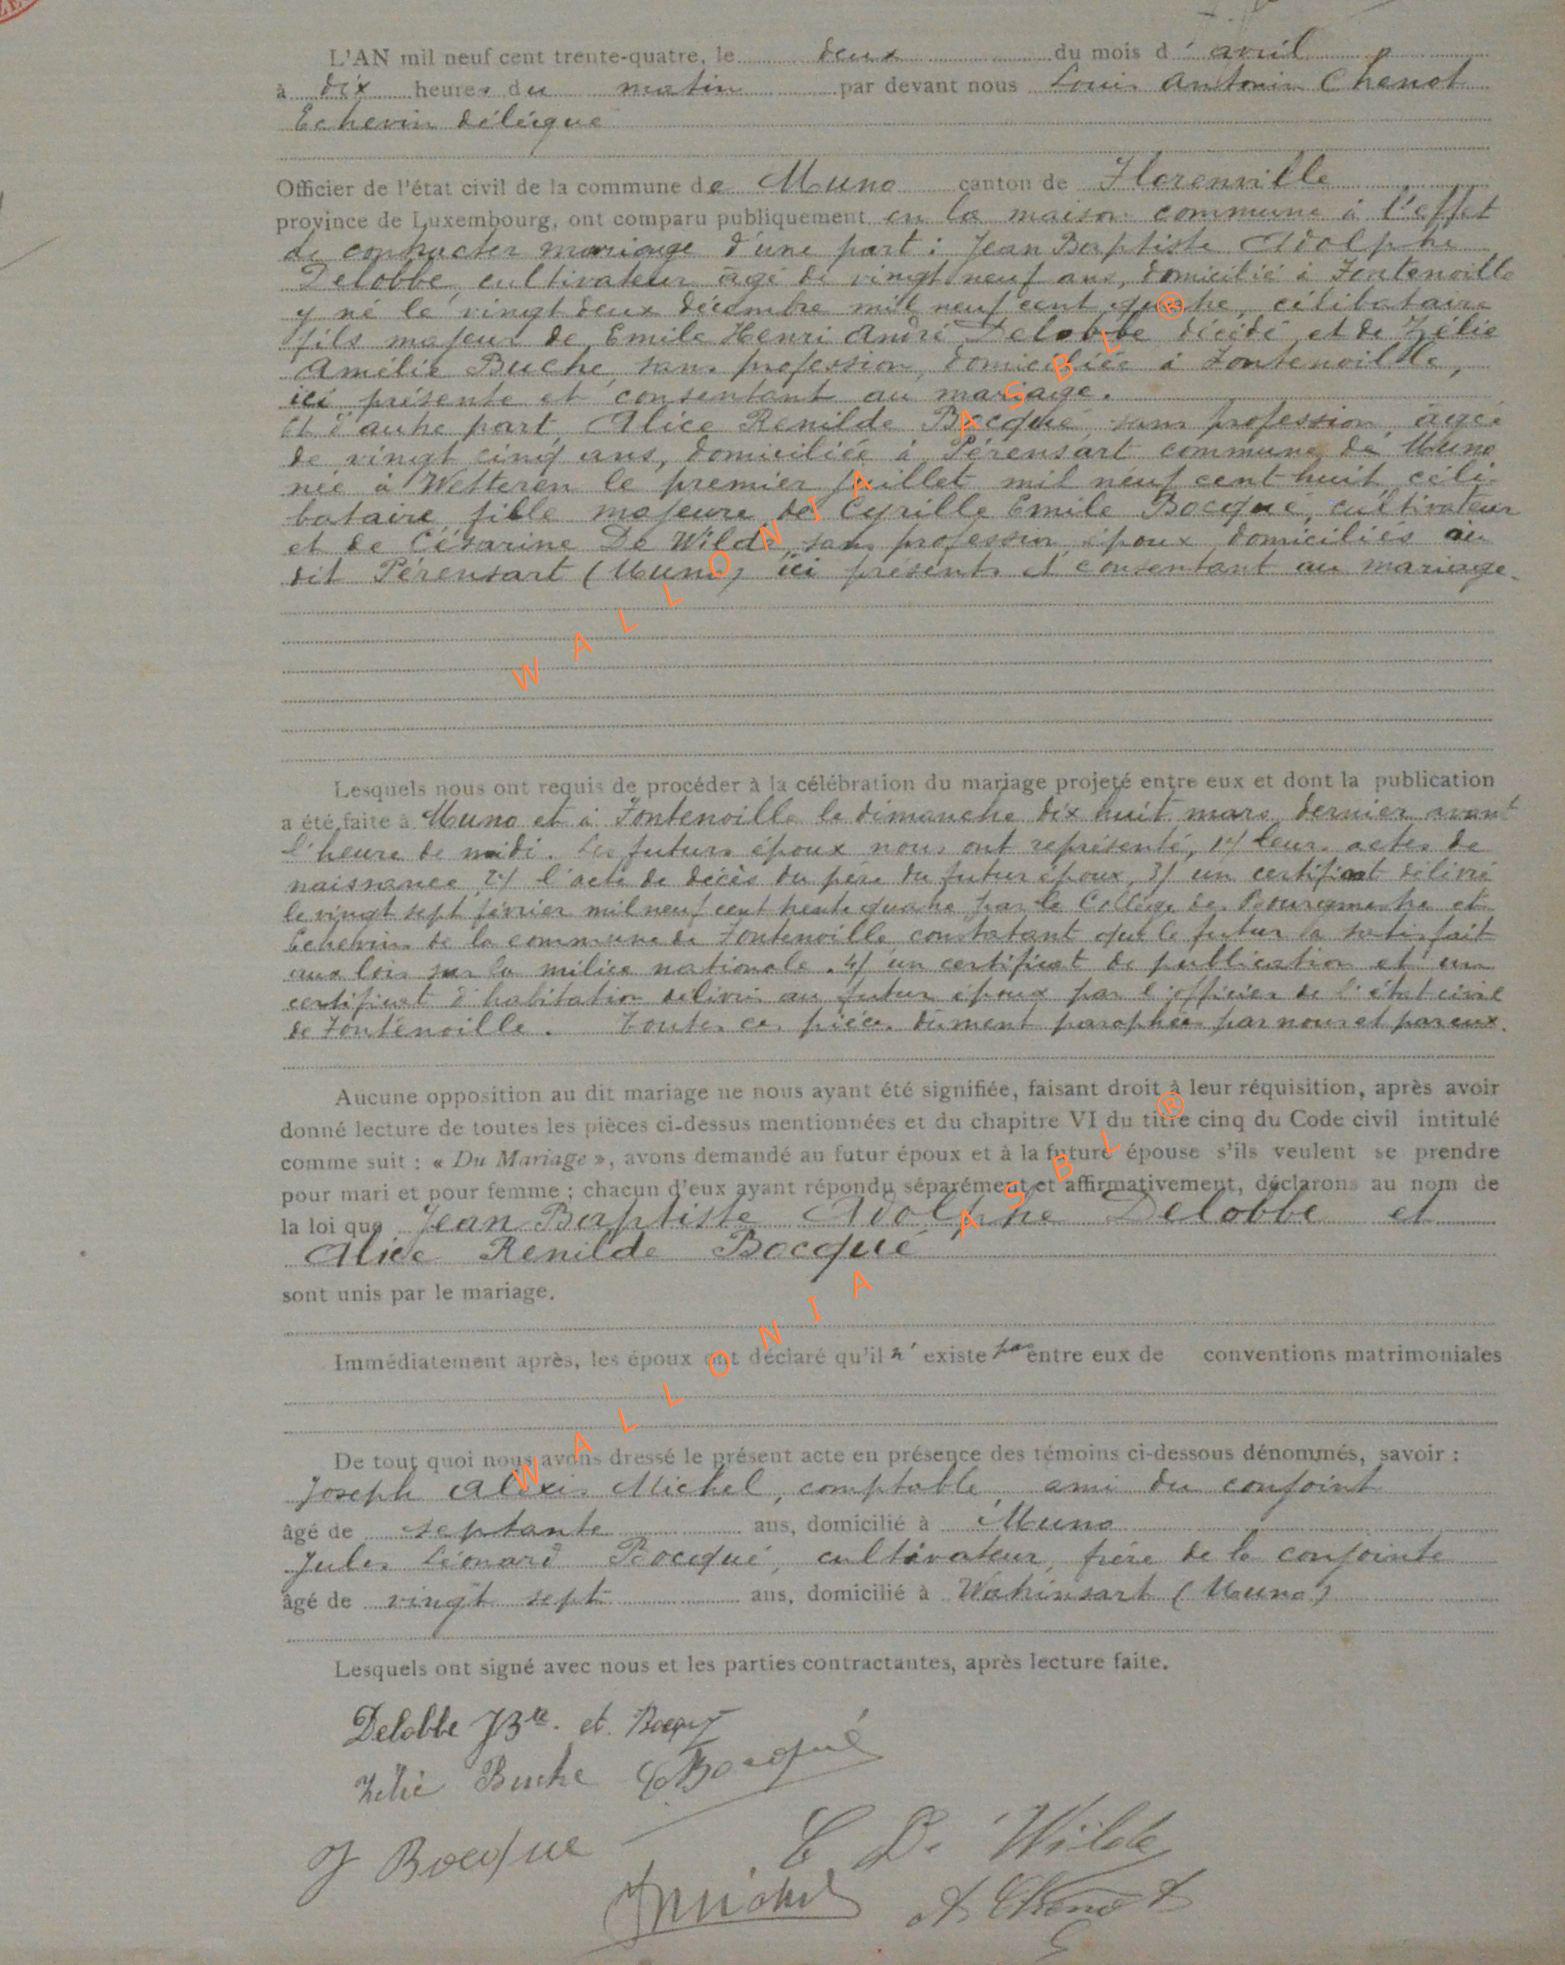 L'AN mil neuf cent trente-quatre, le deux du mois d'avril
à dix heures du matin par devant nous Louis Antonin Chenot
Echevin délégué
Officier de l'état civil de la commune de Muno canton de Florenville
province de Luxembourg, ont comparu publiquement en la maison commune à l'effet
de contracter mariage d'une part : Jean Baptiste Adolphe
Delobbe, cultivateur âgé de vingt neuf ans, domicilié à Fontenoille
y né le vingt deux décembre mil neuf cent quatre, célibataire
fils majeur de Emile Henri André Delobbe décédé et de Zélie
Amélie Buche, sans profession, domiciliée à Fontenoille,
ici présente et consentant au mariage.
Et d'autre part, Alice Renilde Bocqué sans profession, âgée
de vingt cinq ans, domiciliée à Pérensart commune de Muno
née à Wetteren le premier juillet mil neuf cent huit céli-
bataire, fille majeure de Cyrille Emile Bocqué, cultivateur
et de Césarine De Wilde, sans profession, époux domiciliés au
dit Pérensart (Muno) ici présents et consentant au mariage.
Lesquels nous ont requis de procéder à la célébration du mariage projeté entre eux et dont la publication
a été faite à Muno et à Fontenoille le dimanche dix huit mars dernier avant
l'heure de midi. Les futurs époux nous ont représenté, 1°/ leurs actes de
naissance, 2°/ l'acte de décès du père du futur époux, 3/ un certificat délivré
le vingt sept février mil neuf cent trente quatre par le Collège des Bourgmestre et
Echevins de la commune de Fontenoille constatant que le futur a satisfait
aux lois sur la milice nationale. 4/ un certificat de publication et un
certificat d'habitation délivré au futur époux par l'officier de l'état civil
de Fontenoille. Toutes ces pièces dûment paraphées par nous et par eux.
Aucune opposition au dit mariage ne nous ayant été signifiée, faisant droit à leur réquisition, après avoir
donné lecture de toutes les pièces ci-dessus mentionnées et du chapitre VI du titre cinq du Code civil intitulé
comme suit : « Du Mariage », avons demandé au futur époux et à la future épouse s'ils veulent se prendre
pour mari et pour femme ; chacun d'eux ayant répondu séparément et affirmativement, déclarons au nom de
la loi que Jean Baptiste Adolphe Delobbe et
Alice Renilde Bocqué
sont unis par le mariage.
Immédiatement après, les époux ont déclaré qu'il n'existe pas entre eux de conventions matrimoniales
De tout quoi nous avons dressé le présent acte en présence des témoins ci-dessous dénommés, savoir :
Joseph Alexis Michel, comptable, ami du conjoint
âgé de septante ans, domicilié à Muno
Jules Léonard Bocqué, cultivateur, frère de la conjointe
âgé de vingt sept ans, domicilié à Wahinsart (Muno)
Lesquels ont signé avec nous et les parties contractantes, après lecture faite.
Delobbe JBte. et
Zélie Buche C Bocqué
J Bocque C De Wilde
J Michel A. Chenot
WALLONIA ASBL ®
WALLONIA ASBL ®